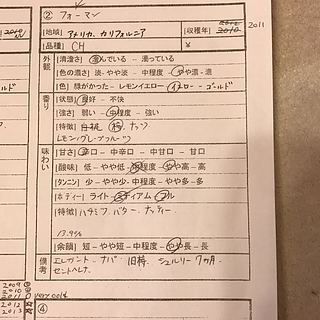 ② フォーマン
[地域] アメリカ、カリフォルニア [収穫年] 2010 2011
[品種] CH ¥
外観 [清澄さ] 澄んでいる – 濁っている
[色の濃さ] 淡-やや淡 - 中程度 - やや濃-濃
[色] 緑がかった – レモンイエロー - イエロー - ゴールド
香り [状態] 良好 – 不快
[強さ] 弱い – 中程度 – 強い
[特徴] 白桃 樽、ナッツ
レモン、グレープフルーツ
味わい [甘さ] 辛口 – 中辛口 – 中甘口 – 甘口
[酸味] 低 – やや低 – 中程度 – やや高 – 高
[タンニン] 少 – やや少 - 中程度 - やや多 – 多
[ボディー] ライト – ミディアム – フル
[特徴] ハチミツ、バター、ナッティー
13.9%
[余韻] 短 – やや短 – 中程度 – やや長 – 長
備考 エレガント - ナパ 旧樽 シュルリー 7ヵ月
セントヘレナ
2009
2010
2011 very cold
2012
2013
④
ルド